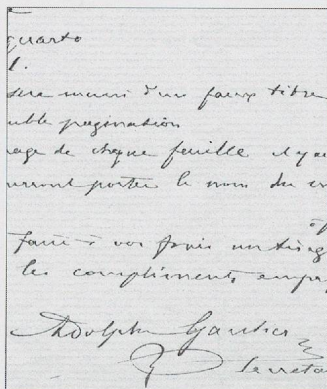 quarto
1.
sera muni d'un faux titre
uble pagination
age de chaque feuille il y au
urront porter le nom du
faire à vos frais un tirag
les compliments empr
Adolphe Gautier
Secréta